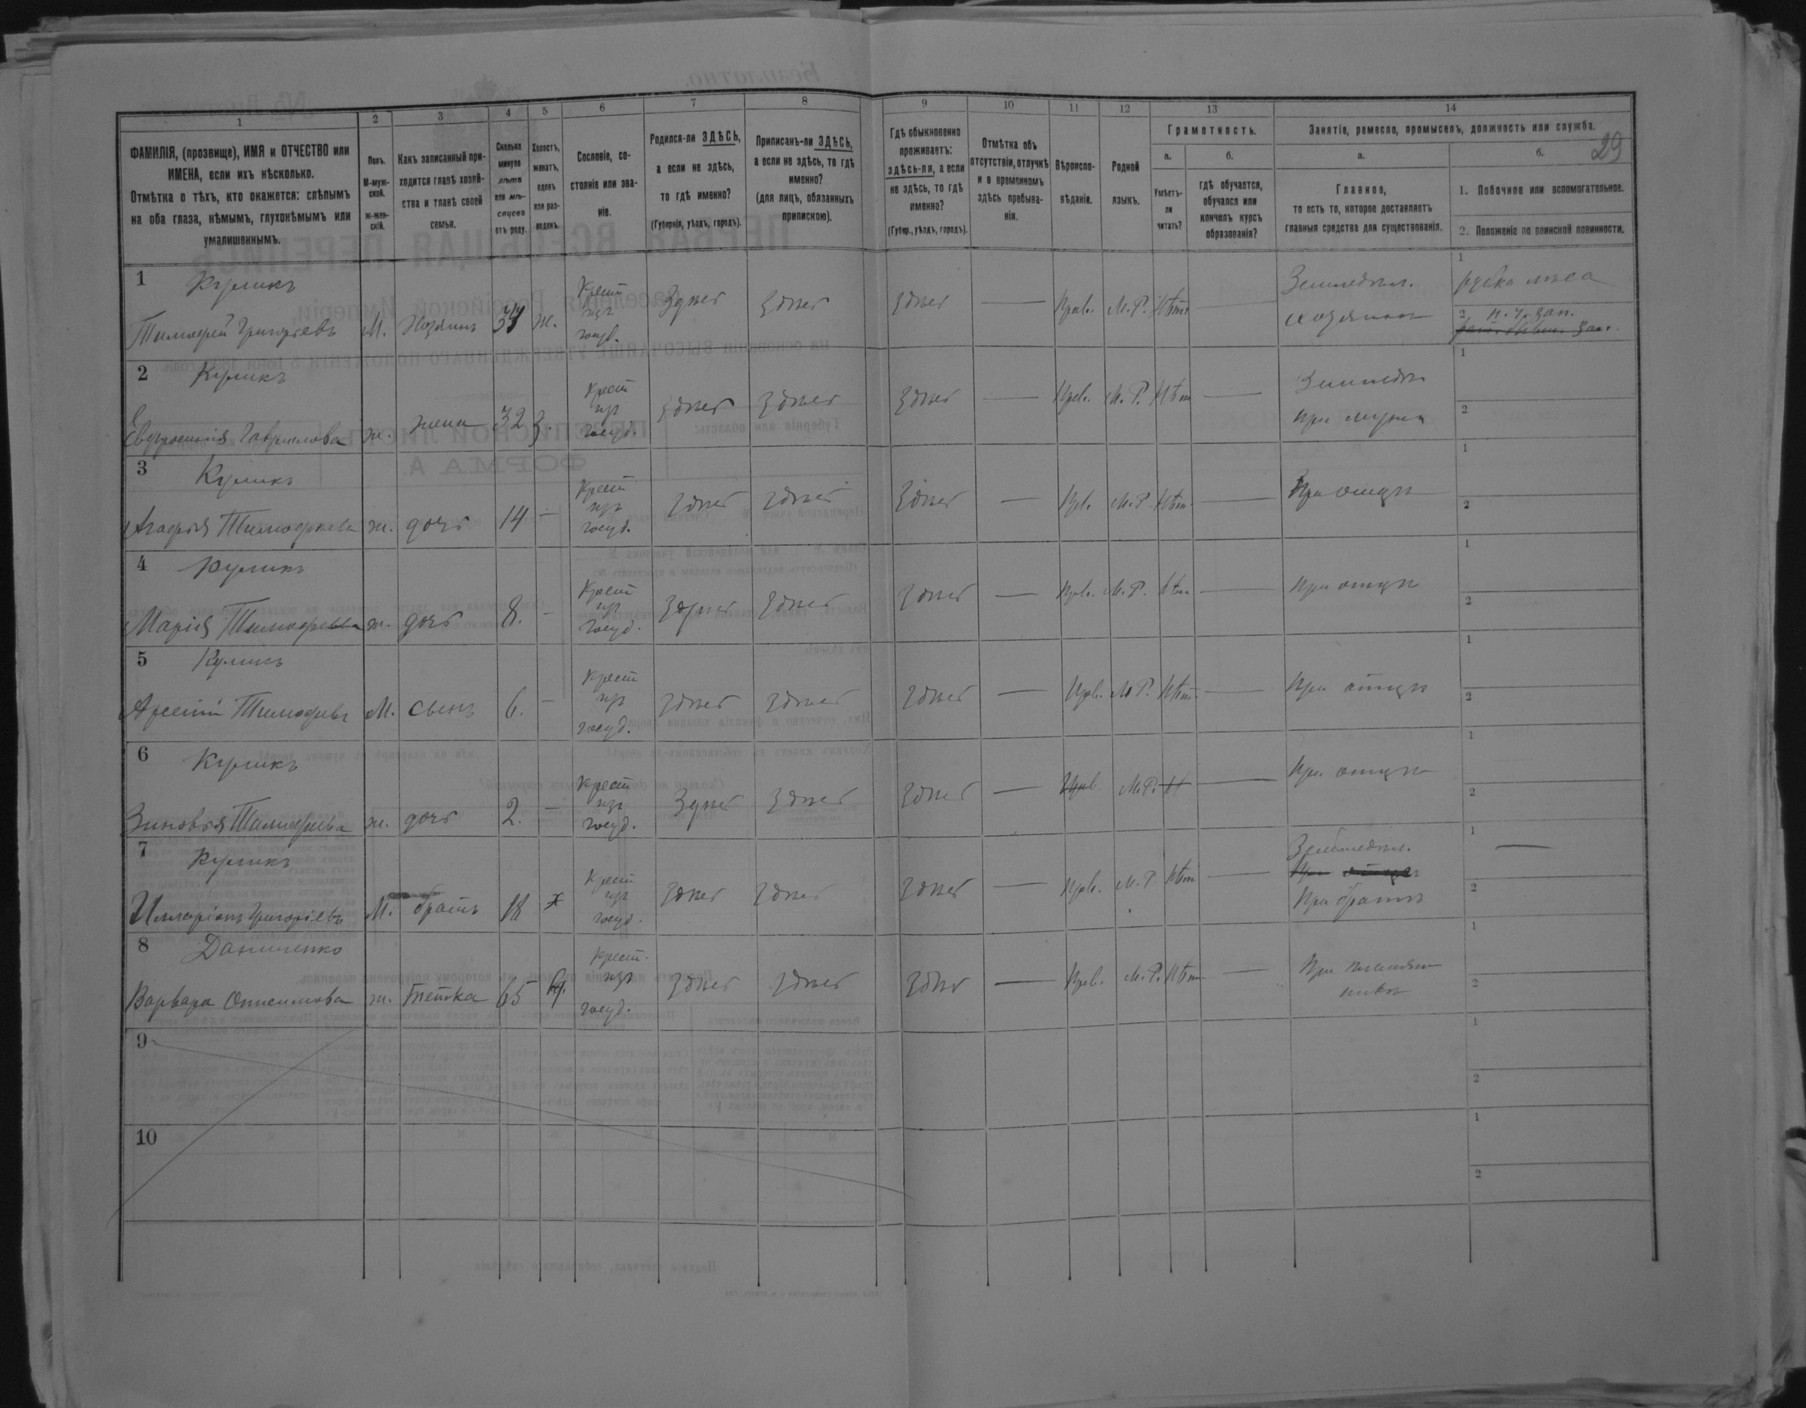 29
1
2
3
4
5
6
7
8
9
10
11
12
13
14
ФАМИЛІЯ, (прозвище), ИМЯ и ОТЧЕСТВО или
ИМЕНА, если ихъ нѣсколько.
Отмѣтка о тѣхъ, кто окажется: слѣпымъ
на оба глаза, нѣмымъ, глухонѣмымъ или
умалишеннымъ.
Полъ.
М-муж-
ской.
Ж-жен-
скій.
Какъ записанный при-
ходится главѣ хозяй-
ства и главѣ своей
семьи.
Сколько
минуло
лѣтъ
или мѣ-
сяцевъ
отъ роду.
Холостъ,
женатъ,
вдовъ
или раз-
веденъ.
Сословіе, со-
стояніе или зва-
ніе.
Родился-ли ЗДѢСЬ,
а если не здѣсь,
то гдѣ именно?
(Губернія, уѣздъ, городъ).
Приписанъ-ли ЗДѢСЬ,
а если не здѣсь, то гдѣ
именно?
(для лицъ, обязанныхъ
припискою).
Гдѣ обыкновенно
проживаетъ:
ЗДѢСЬ-ЛИ, а если
не здѣсь, то гдѣ
именно?
(Губер., уѣздъ, городъ).
Отмѣтка объ
отсутствіи, отлучкѣ
и о временномъ
здѣсь пребыва-
ніи.
Вѣроиспо-
вѣданіе.
Родной
языкъ.
Грамотность.
а.
Умѣетъ-
ли
читать?
б.
гдѣ обучается,
обучался или
кончилъ курсъ
образованія?
Занятіе, ремесло, промыселъ, должность или служба.
а.
Главное,
то есть то, которое доставляетъ
главныя средства для существованія.
б.
1. Побочное или вспомогательное.
2. Положеніе по воинской повинности.
1 Куликъ
Тимофей Григорьевъ М. Хозяинъ 34 ж. Крест. изъ госуд. Здѣсь Здѣсь Здѣсь — Прав. М. Р. Нѣтъ — Земледѣл. хозяинъ
1 рубка лѣса
2
2 Куликъ
Евфросинія Гаврилова ж. жена 32 з. Крест изъ госуд. Здѣсь Здѣсь Здѣсь — Прав. М. Р. Нѣтъ — Земледѣл при мужѣ
1
2
3 Куликъ
Агафья Тимофеева ж. дочь 14 — Крест изъ госуд. Здѣсь Здѣсь Здѣсь — Прв. М. Р. Нѣт. — При отцѣ
1
2
4 Куликъ
Марія Тимофеева ж. дочь 8. — Крест изъ госуд. Здѣсь Здѣсь Здѣсь — Прав. М. Р. Нѣт — При отцѣ
1
2
5 Куликъ
Арсеній Тимофеевъ М. сынъ 6. — Крест изъ госуд. Здѣсь Здѣсь Здѣсь — Прв. М. Р. Нѣт. — При отцѣ
1
2
6 Куликъ
Зиновья Тимофеева ж. дочь 2. — Крест изъ госуд. Здѣсь Здѣсь Здѣсь — Прв. М. Р. Н — При отцѣ
1
2
7 Куликъ
Илларіонъ Григорьевъ М. братъ 18 х Крест изъ госуд. Здѣсь Здѣсь Здѣсь — Прав. М. Р. Нѣт — Земледѣл. При братѣ
1 —
2
8 Даниленко
Варвара Онисимова ж. тетка 65 Крест. изъ госуд. Здѣсь Здѣсь Здѣсь — Прав. М. Р. Нѣт — При племян никѣ
1
2
9
1
2
10
1
2